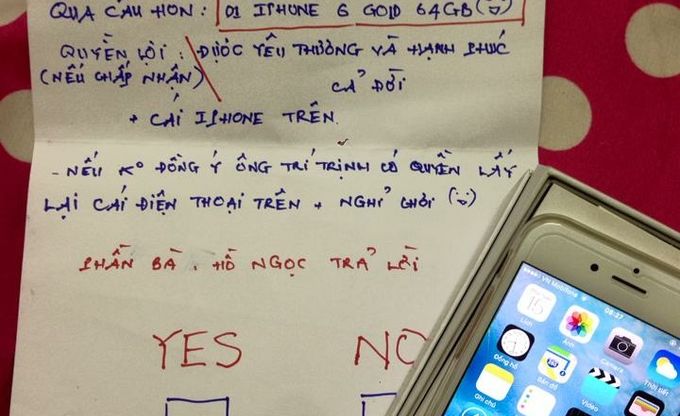 QUÀ CẦU HÔN : 01 IPHONE 6 GOLD 64GB
QUYỀN LỢI : ĐƯỢC YÊU THƯƠNG VÀ HẠNH PHÚC
(NẾU CHẤP NHẬN) CẢ ĐỜI
+ CÁI IPHONE TRÊN.
- NẾU K° ĐỒNG Ý ÔNG TRÍ TRỊNH CÓ QUYỀN LẤY
LẠI CÁI ĐIỆN THOẠI TRÊN + NGHỈ CHƠI
PHẦN BÀ . HỒ NGỌC TRẢ LỜI
YES NO
VN Mobifone 08:27
15
Lịch Ảnh Camera Thời tiết
Đồng hồ Bản đồ Video
Ghi chú